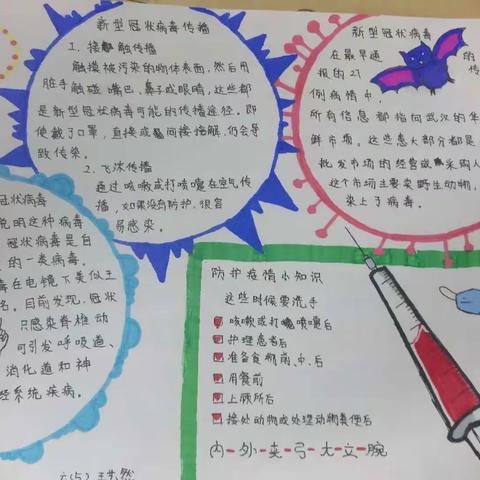 新型冠状病毒传播
1、接触传播
触摸被污染的物体表面，然后用
脏手触碰嘴巴、鼻子或眼睛，这些都
是新型冠状病毒可能的传播途径。即
使戴了口罩，直接或间接接触，仍会导
致传染。
2、飞沫传播
通过咳嗽或打喷嚏在空气传
播，如果没有防护，很容
易感染。
新型冠状病毒
在最早通的
报的27
例病情中，
所有信息都指向武汉的华
鲜市场。这些患大部分都是
批发市场的经营或采购人
这个市场主要卖野生动物，
染上了病毒。
冠状病毒
说明这种病毒
冠状病毒是自
的一类病毒。
毒在电镜下美似王
名。目前发现，冠状
只感染脊椎动
可引发呼吸道、
消化道和神
经系统疾病。
防护疫情小知识
这些时候要洗手
咳嗽或打喷嚏后
护理患者后
准备食物前、中、后
用餐前
上厕所后
接处动物或处理动物粪便后
内-外-夹-弓-大-立-腕
六(5)